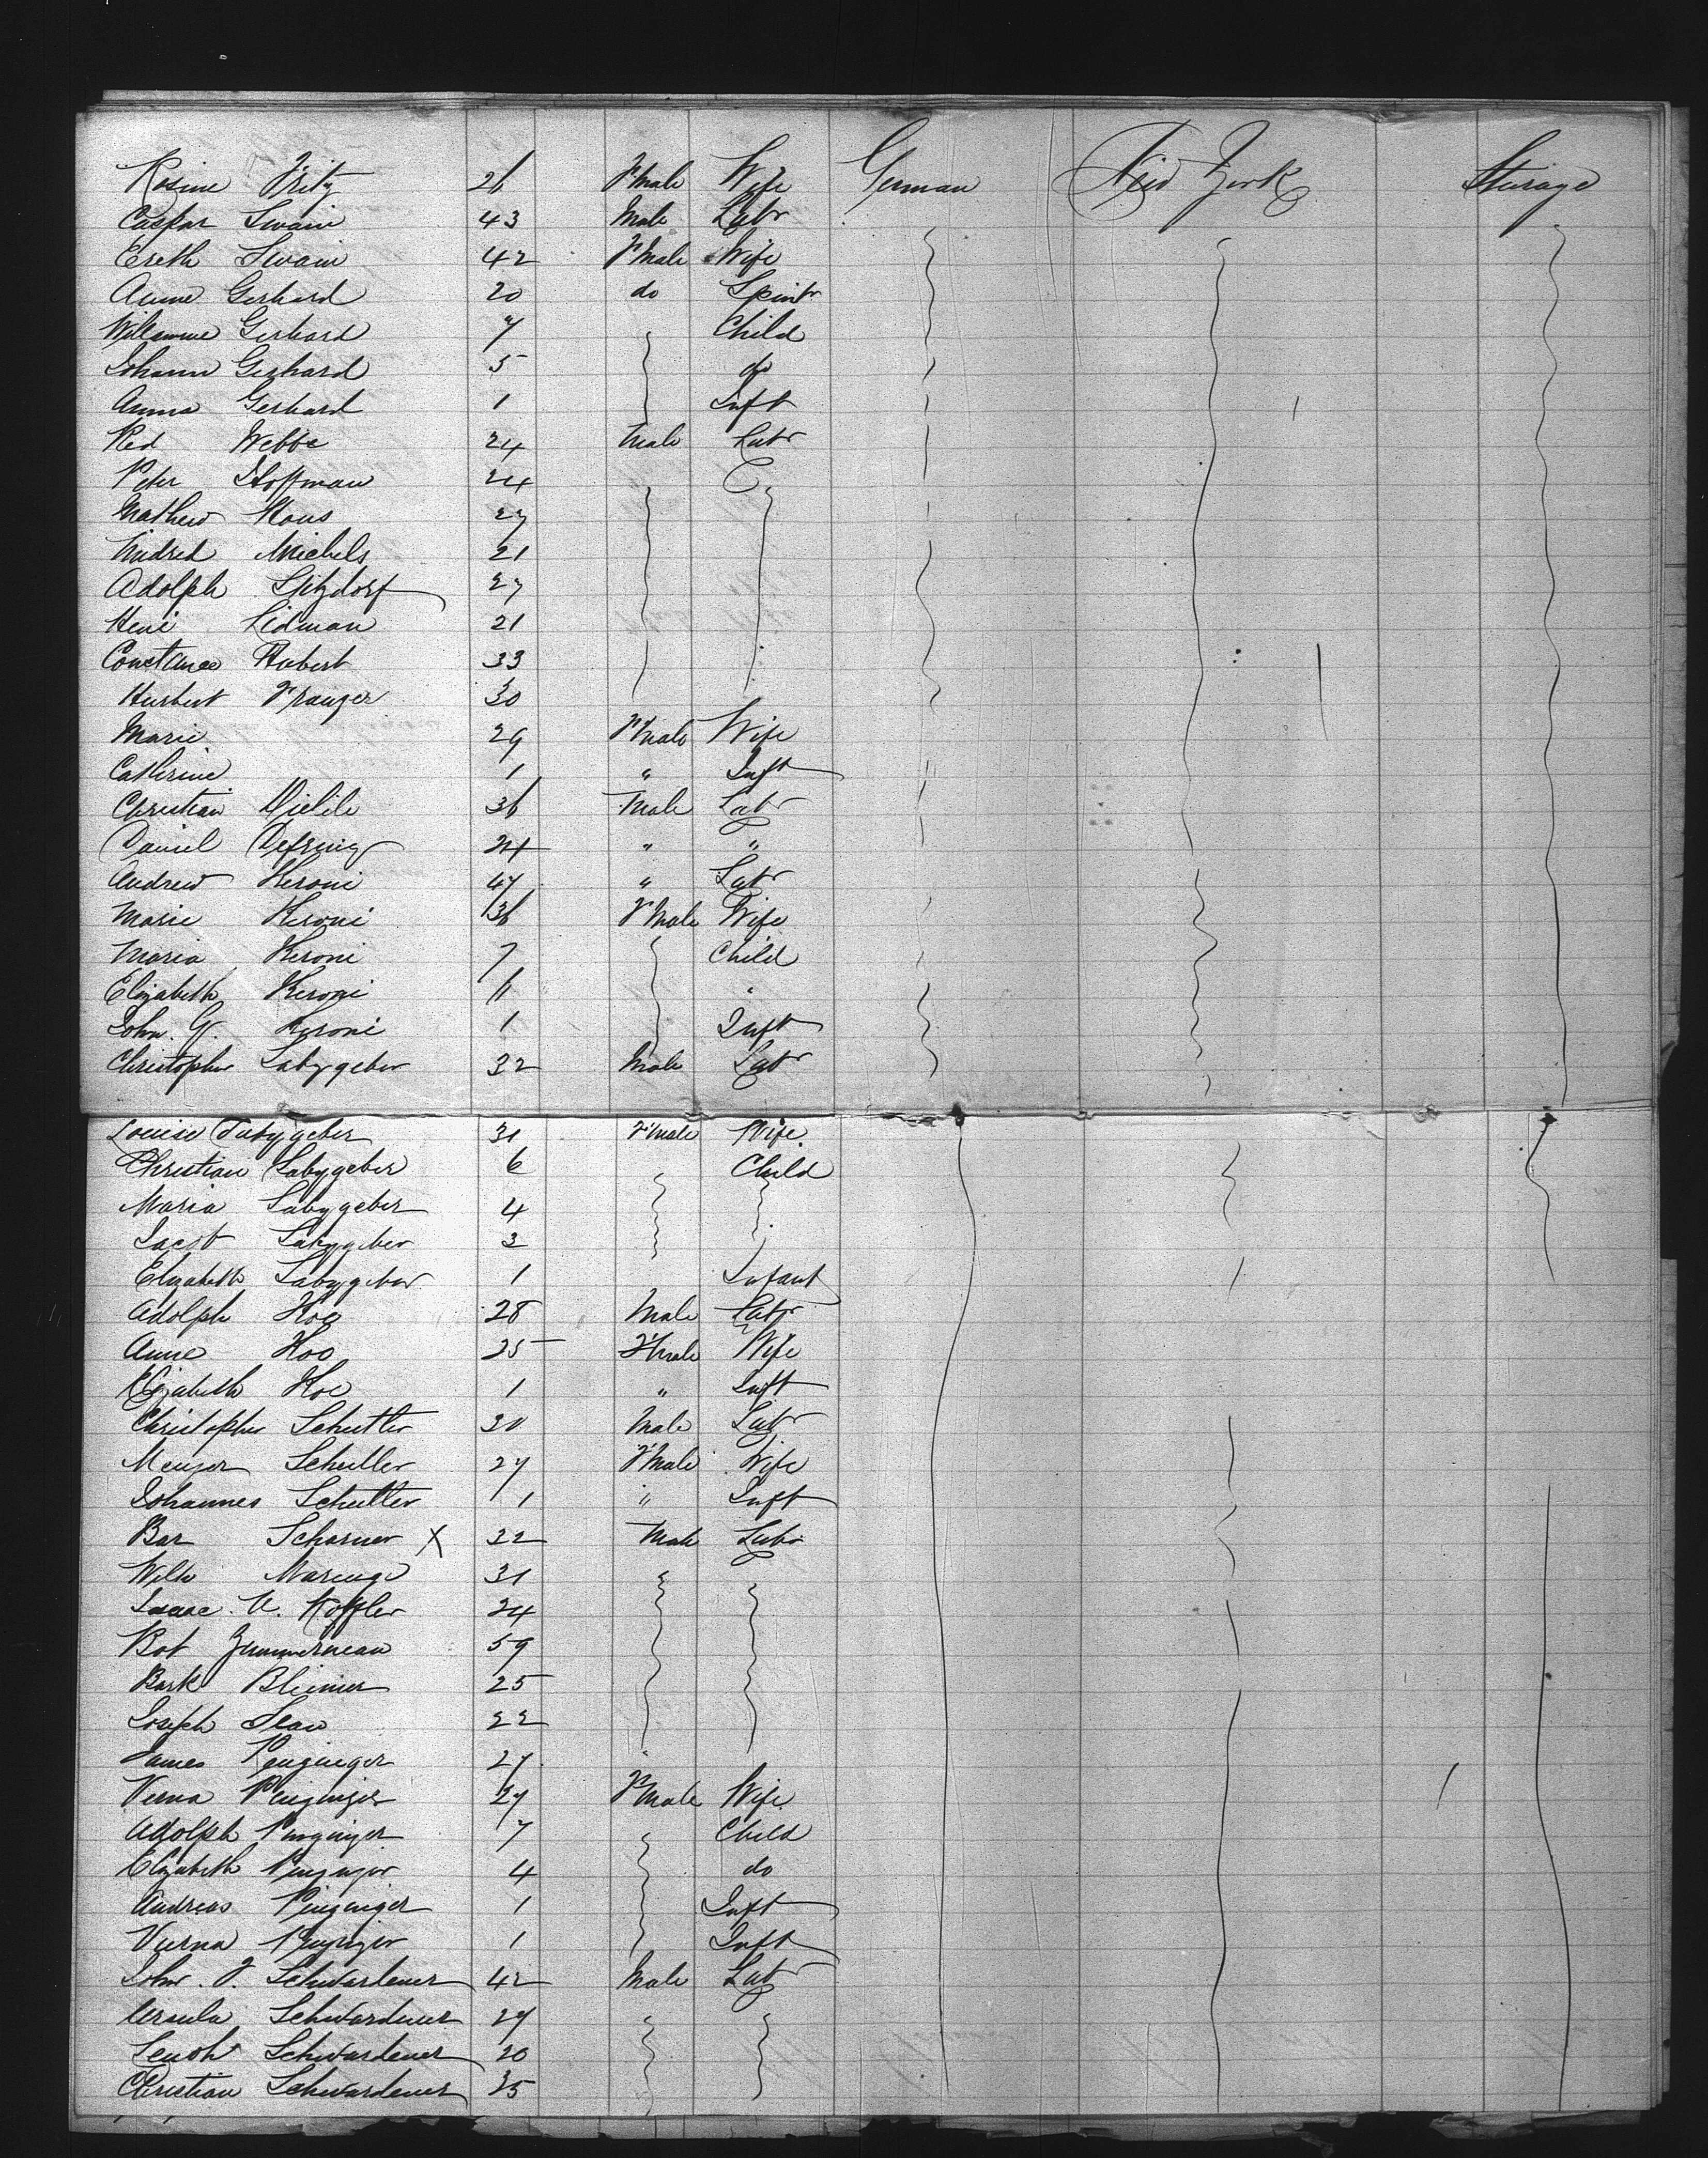 Rosine Fritz 26 F'male Wife German New York Sturage
Caspar Swain 43 Male Labr
Ereth Swain 42 F'Male Wife
Anne Gerhard 20 do Spintr
Gerhard 7 Child
Johann Gerhard 5 do
Anna Gerhard 1 Inft
Webbe 24 Male Labr
Peter Hoffman 24
Mathew Haus 27
Michels 21
Adolph 27
Heni Lidman 21
Constance Hubert 33
Hurbert Franger 30
Marie 29 F'male Wife
Catherine 1 " Inft
Christian 36 Male Labr
Daniel 24 " "
Andrew Keroni 47 " Labr
Marie Keroni 36 F'Male Wife
Maria Keroni 7 Child
Elizabeth Keroni 11 "
John. G. Keroni 1 Inft
Christopher Labygeber 32 Male Labr
Louise Labygeber 31 F'male Wife
Christian Labygeber 6 Child
Maria Labygeber 4
Jacob Labygeber 3
Elizabeth Labygeber 1 Infant
Adolph Hoe 28 Male Labr
Anne Hoe 25 F'male Wife
Elizabeth Hoe 1 " Inft
Christopher Schutler 30 Male Labr
Schutler 27 F'Male Wife
Johannes Schutler 1 " Inft
Bar Scharner X 32 Male Labr
Wilh 31
Isaac. Koffler 24
Zimmerman 59
Bark Bleimer 25
Joseph 22
James Penzinger 27
Verna Penzinger 27 F'Male Wife
Adolph Penzinger 7 Child
Elizabeth Penzinger 4 do
Andreas Penzinger 1 Inft
Verna Penzinger 1 Inft
John. F. Schwardener 42 Male Labr
Ursula Schwardener 27
Schwardener 20
Christian Schwardener 35